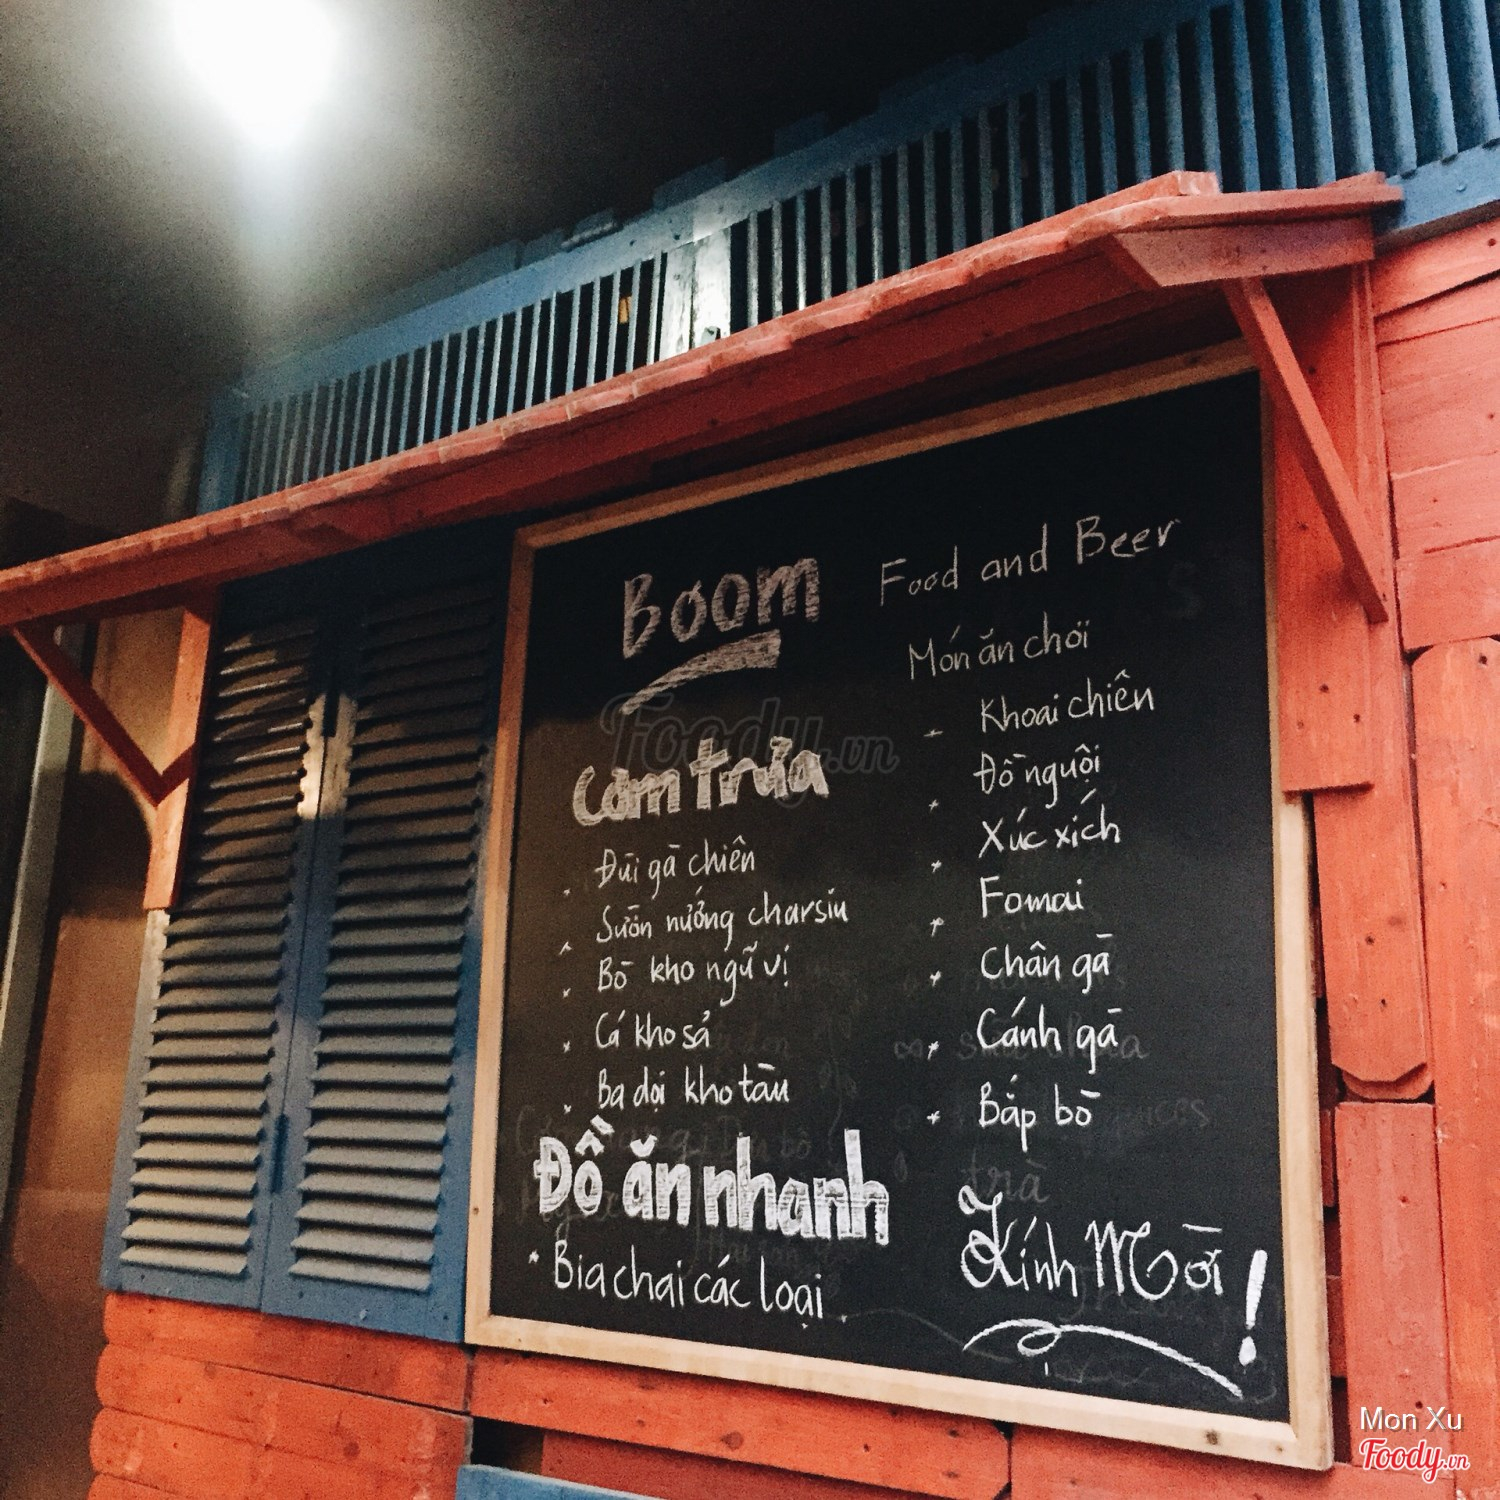 Boom
Cơm trưa
Đùi gà chiên
Sườn nướng charsiu
Bò kho ngũ vị
Cá kho sả
Ba dọi kho tàu
Đồ ăn nhanh
* Bia chai các loại
Food and Beer
Món ăn chơi
- Khoai chiên
Đồ nguội
Xúc xích
Fomai
Chân gà
Cánh gà
Bắp bò
Kính Mời!
Foody.vn
Mon Xu
Foody.vn